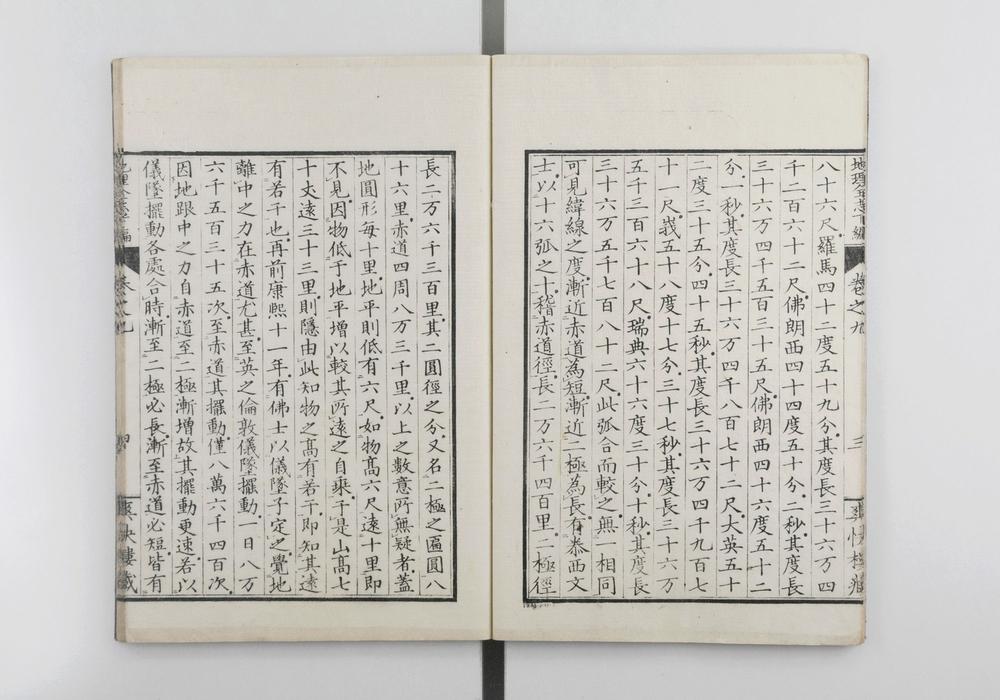 地理全志下編 卷之九 三 爽快樓藏
八十六尺羅馬四十二度五十九分其度長三十六万四
千二百六十二尺佛朗西四十四度五十分二秒其度長
三十六万四千五百三十五尺佛朗西四十六度五十二
分一秒其度長三十六万四千八百七十二尺大英五十
二度三十五分四十五秒其度長三十六万四千九百七
十一尺峩五十八度十七分三十七秒其度長三十六万
五千三百六十八尺瑞典六十六度三十分十秒其度長
三十六万五千七百八十二尺此弧合而較之無一相同
可見緯線之度漸近赤道為短漸近二極為長有泰西文
士以十六弧之十稽赤道徑長二万六千四百里二極徑
長二万六千三百里其二圓徑之分又名二極之匾圓八
十六里赤道四周八万三千里以上之數意所無疑者蓋
地圓形每十里地平則低有六尺如物高六尺遠十里即
不見因物低于地平增以較其所遠之自乘于是山高七
十丈遠三十三里則隱由此知物之高有若干即知其遠
有若干也再前康熙十一年有佛士以儀墜子定之覺地
離中之力在赤道尤甚至英之倫敦儀墜擺動一日八万
六千五百三十五次至赤道其擺動僅八萬六千四百次
因地跟中之力自赤道至二極漸增故其擺動更速若以
儀墜擺動各處合時漸至二極必長漸至赤道必短皆有
地理全志下編 卷之九 四 爽快樓藏